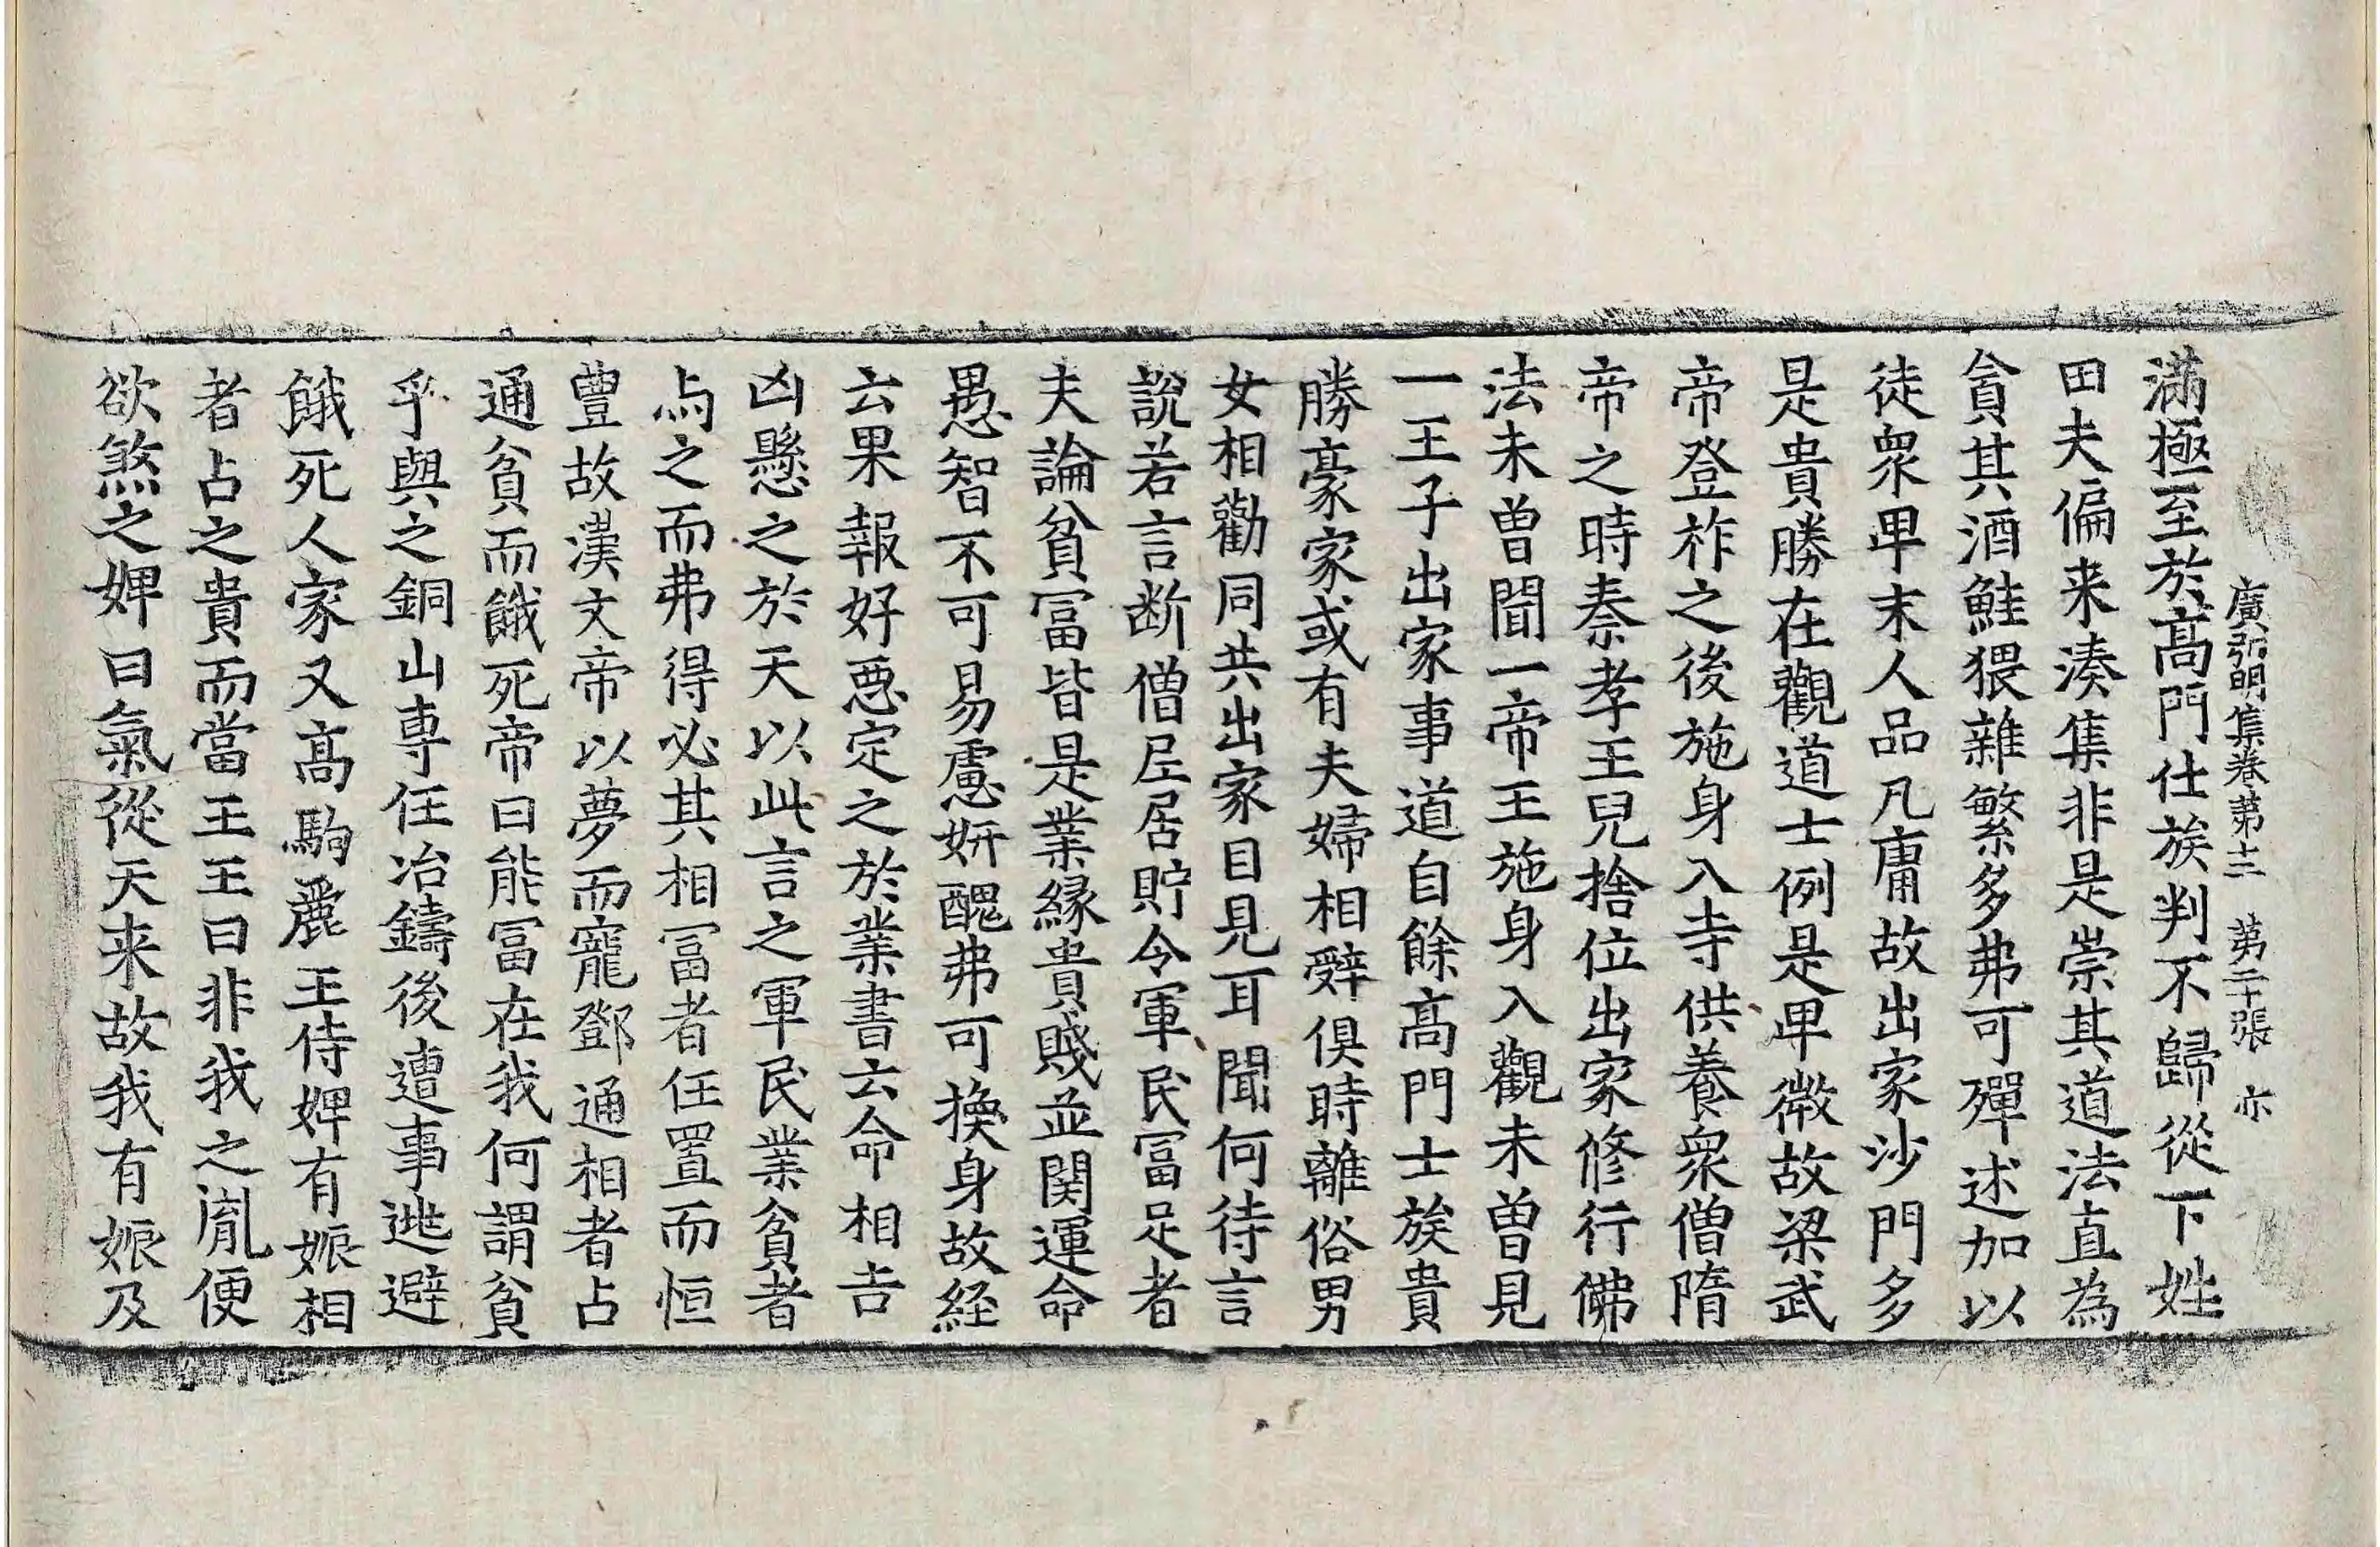 廣弘明集卷第十三　第二十張　亦
滿極至於髙門仕族判不歸從下姓
田夫偏来湊集非是崇其道法直為
貪其酒鮭猥雜繁多弗可殫述加以
徒衆卑末人品凡庸故出家沙門多
是貴勝在觀道士例是卑微故梁武
帝登祚之後施身入寺供養衆僧隋
帝之時秦孝王兒捨位出家修行佛
法未曾聞一帝王施身入觀未曾見
一王子出家事道自餘髙門士族貴
勝豪家或有夫婦相辝俱時離俗男
女相勸同共出家目見耳聞何待言
說若言断僧屈居貯令軍民冨足者
夫論貧冨皆是業緣貴賤並関運命
愚智不可易慮妍醜弗可換身故経
云果報好惡定之於業書云命相吉
凶懸之於天以此言之軍民業貧者
与之而弗得必其相冨者任置而恒
豊故漢文帝以夢而寵鄧通相者占
通貧而餓死帝曰能冨在我何謂貧
乎與之銅山専任冶鑄後遭事逃避
餓死人家又髙駒麗王侍婢有娠相
者占之貴而當王王曰非我之胤便
欲煞之婢曰氣從天来故我有娠及